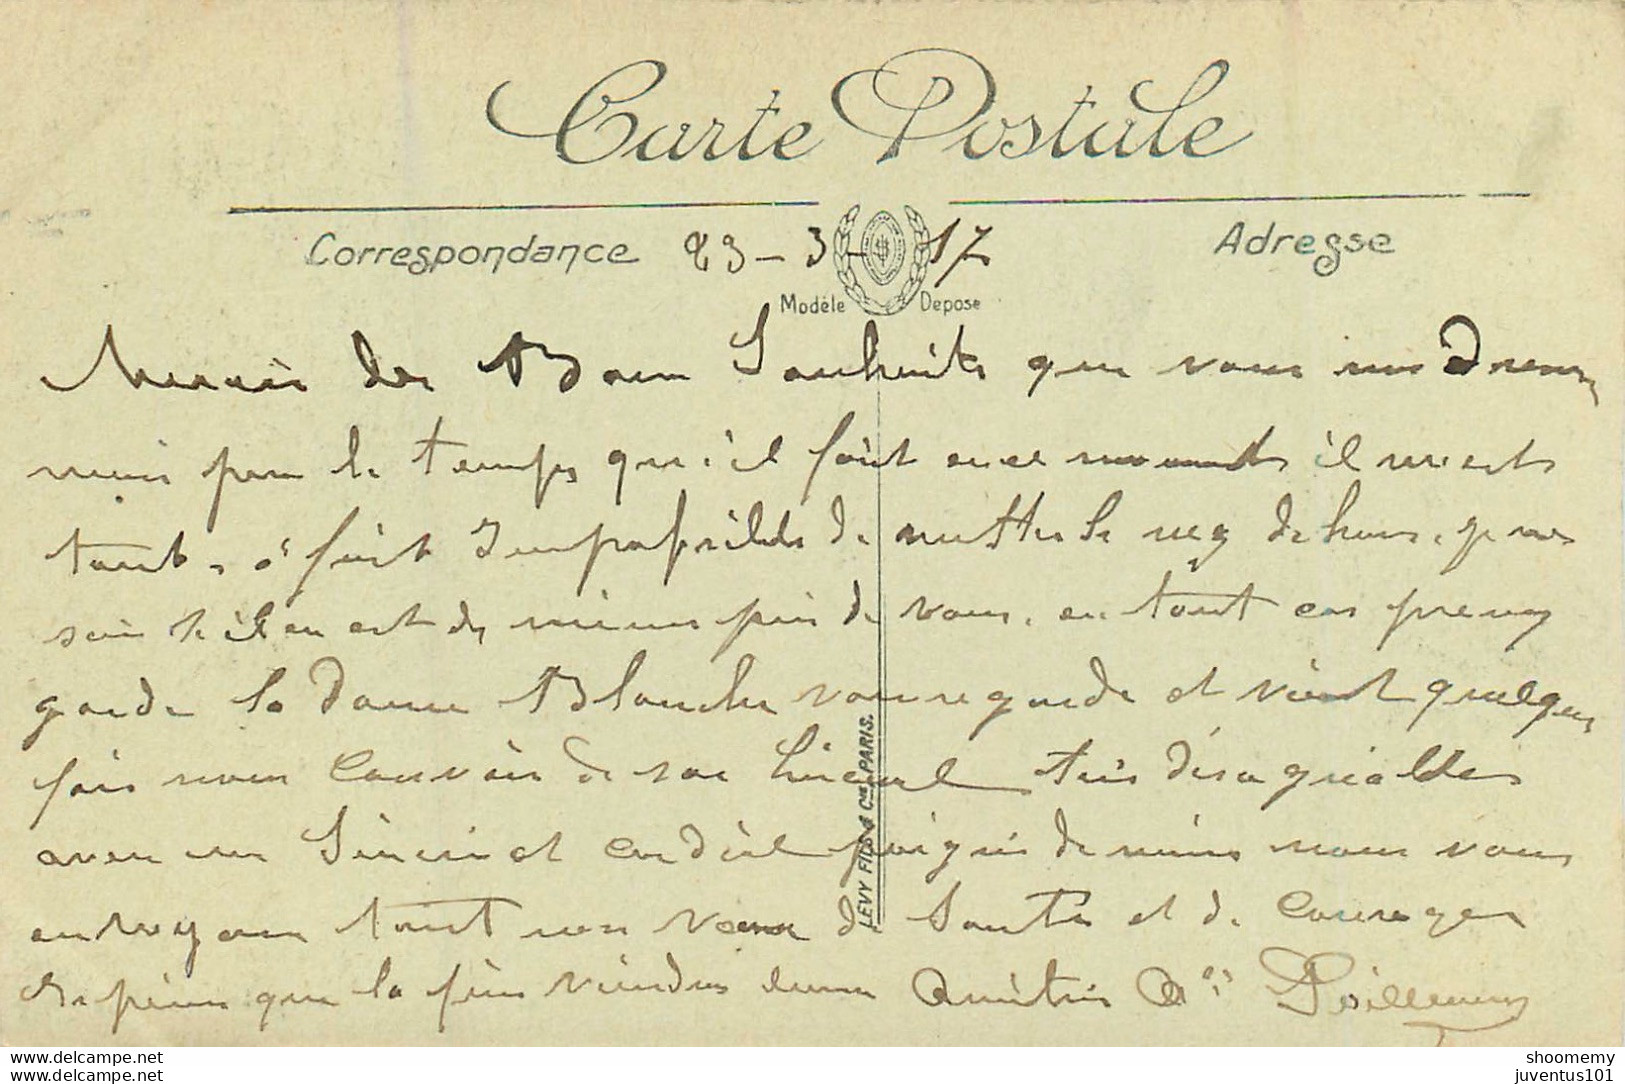 Carte Postale
Correspondance 23-3-17 Adresse
Modèle Déposé
Merci des Bons Souhaits que vous nous
mais par le temps qu'il fait en ce moment il
tant, fait Impossible de mettre le nez dehors,
en est de de vous, en tout cas prenez
garde la Dame Blanche vous regarde et vient quelques
fois nous couvrir de son linceul très désagréables
avec un Sincère et Cordial poignée de mains nous vous
envoyons tout nos vœux de Santé et de Courage
que la fin Amitiés
LEVY FILS & Cie PARIS.
www.delcampe.net
www.delcampe.net
shoomemy
juventus101